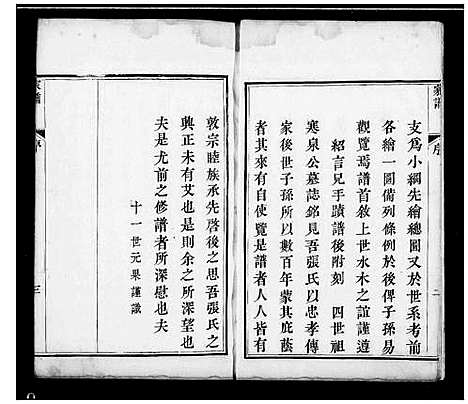 家譜
序
二
支為小綱先繪總圖又於世系考前
各繪一圖備列條例於後俾子孫易
觀覽焉譜首敘上世水木之誼謹遵
紹言兄手蹟譜後附刻 四世祖
寒泉公墓誌銘見吾張氏以忠孝傳
家後世子孫所以數百年蒙其庇蔭
者其來有自使覽是譜者人人皆有
敦宗睦族承先啓後之思吾張氏之
興正未有艾也是則余之所深望也
夫是尤前之修譜者所深慰也夫
十一世元杲謹識
家譜
序
三